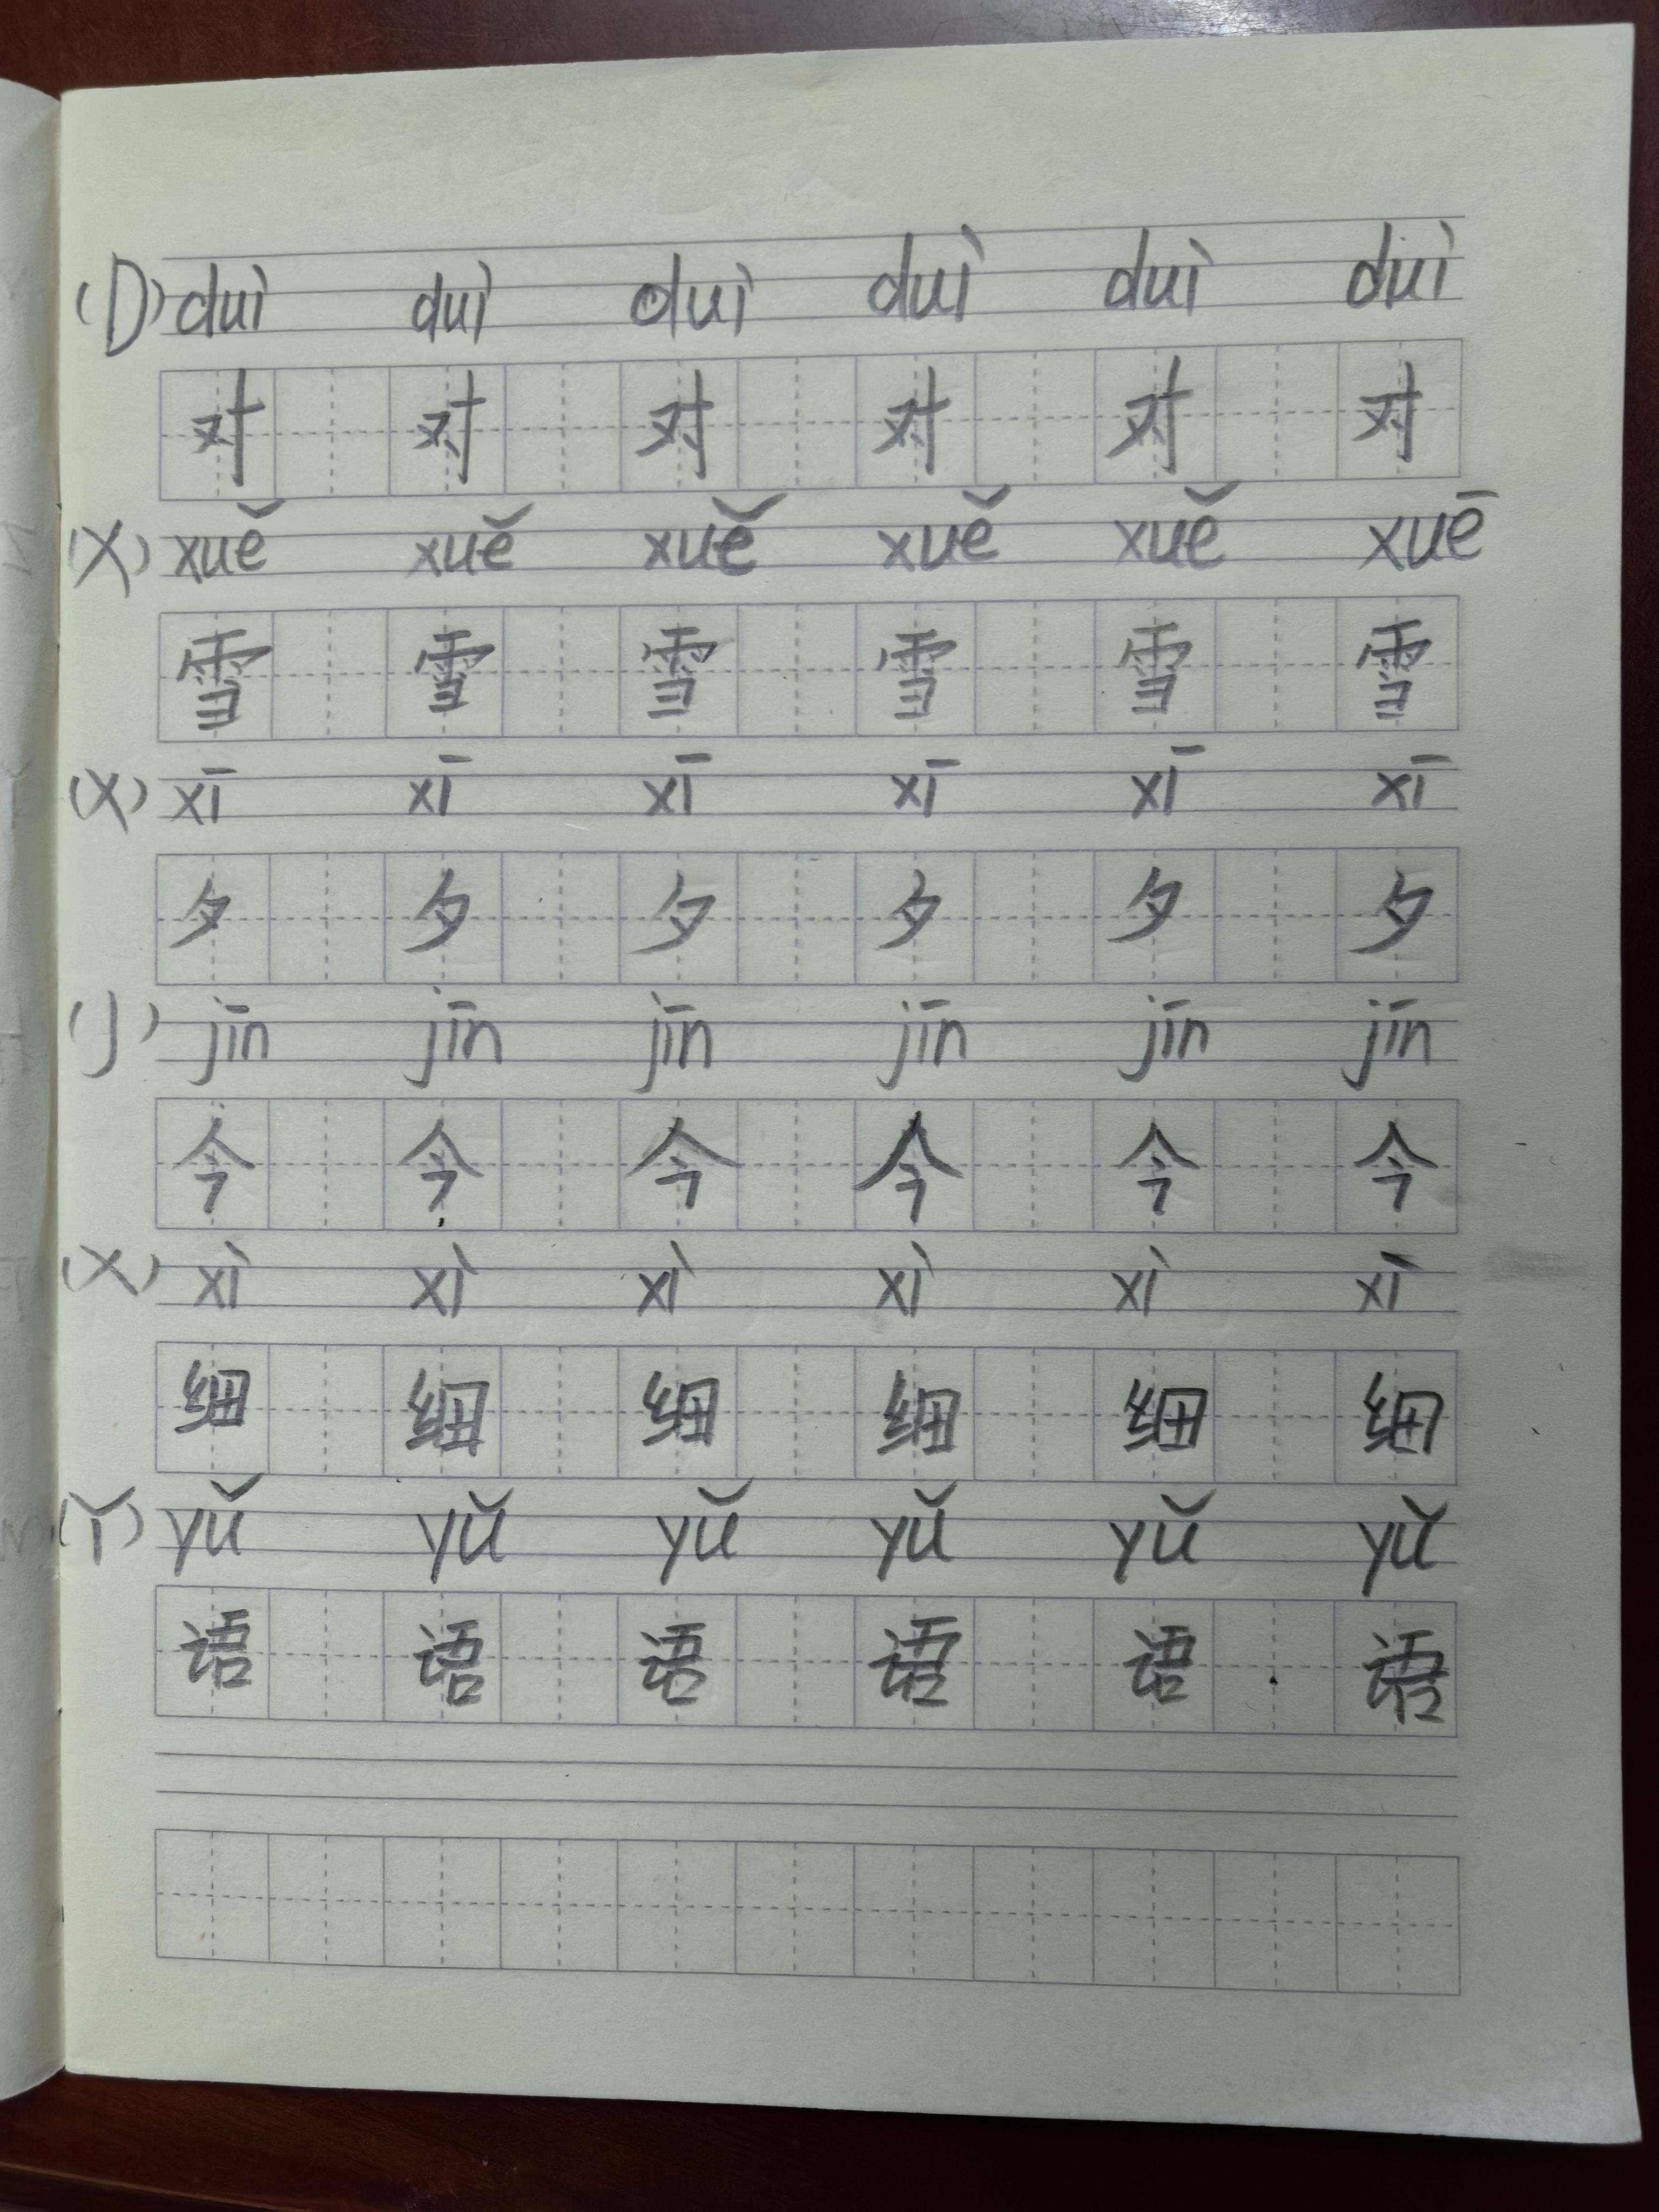 (D) duì duì duì duì duì duì
对 对 对 对 对 对
(X) xuě xuě xuě xuě xuě xuē
雪 雪 雪 雪 雪 雪
(X) xī xī xī xī xī xī
夕 夕 夕 夕 夕 夕
(J) jīn jīn jīn jīn jīn jīn
今 今 今 今 今 今
(X) xì xì xì xì xì xī
细 细 细 细 细 细
(Y) yǔ yǔ yǔ yǔ yǔ yǔ
语 语 语 语 语 语